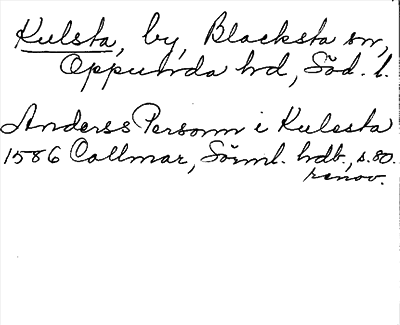 Kulsta, by, Blacksta sn,
Oppunda hd, Söd. l.
Anderss Personn i Kulesta
1586 Callmar, Sörml. hdb., s. 80.
renov.